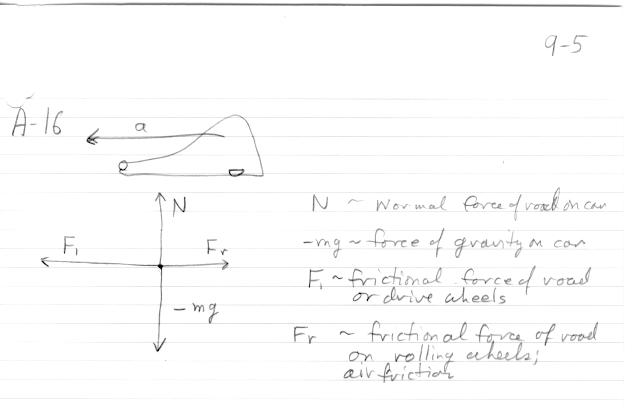 9-5
A-16
a
N
N ~ Normal force of road on car
F₁
Fr
-mg ~ force of gravity on car
F₁ ~ frictional force of road
or drive wheels
- mg
Fr ~ frictional force of road
on rolling wheels;
air friction